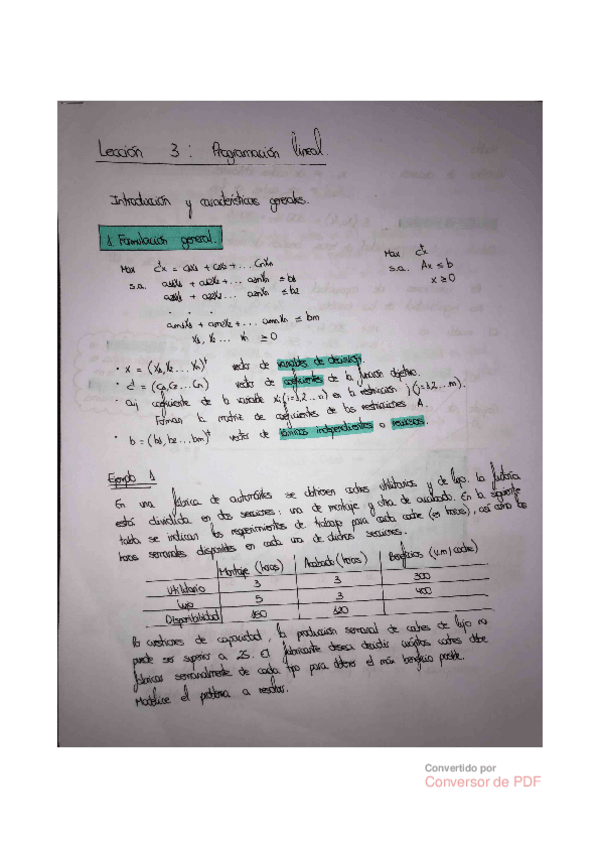 Lección 3: Programación lineal.
Introducción y características generales.
1 Formulación general.
Max c^t x = c1x1 + c2x2 + ... cnxn
s.a. a11x1 + a12x2 + ... a1nxn ≤ b1
a21x1 + a22x2 ... a2nxn ≤ b2
. . .
am1x1 + am2x2 + ... amnxn ≤ bm
x1, x2 ... xn ≥ 0
Max c^t x
s.a. Ax ≤ b
x ≥ 0
· x = (x1, x2 ... xn)^t vector de variables de decisión.
· c^t = (c1, c2 ... cn) vector de coeficientes de la función objetivo.
· aij coeficiente de la variable xi (i=1,2... n) en la restricción j (j=1,2...m).
Forman la matriz de coeficientes de las restricciones A.
· b = (b1, b2 ... bm)^t vector de términos independientes o recursos.
Ejemplo 1
En una fábrica de automóviles se obtienen coches utilitarios y de lujo. La factoría
está dividida en dos secciones: una de montaje y otra de acabado. En la siguiente
tabla se indican los requerimientos de trabajo para cada coche (en horas), así como las
horas semanales disponibles en cada una de dichas secciones.
Montaje (horas) Acabado (horas) Beneficios (u.m/coche)
Utilitario 3 3 300
Lujo 5 3 400
Disponibilidad 150 120
Por cuestiones de capacidad, la producción semanal de coches de lujo no
puede ser superior a 25. El fabricante desea decidir cuántos coches debe
fabricar semanalmente de cada tipo para obtener el máx beneficio posible.
Modelice el problema a resolver.
Convertido por
Conversor de PDF